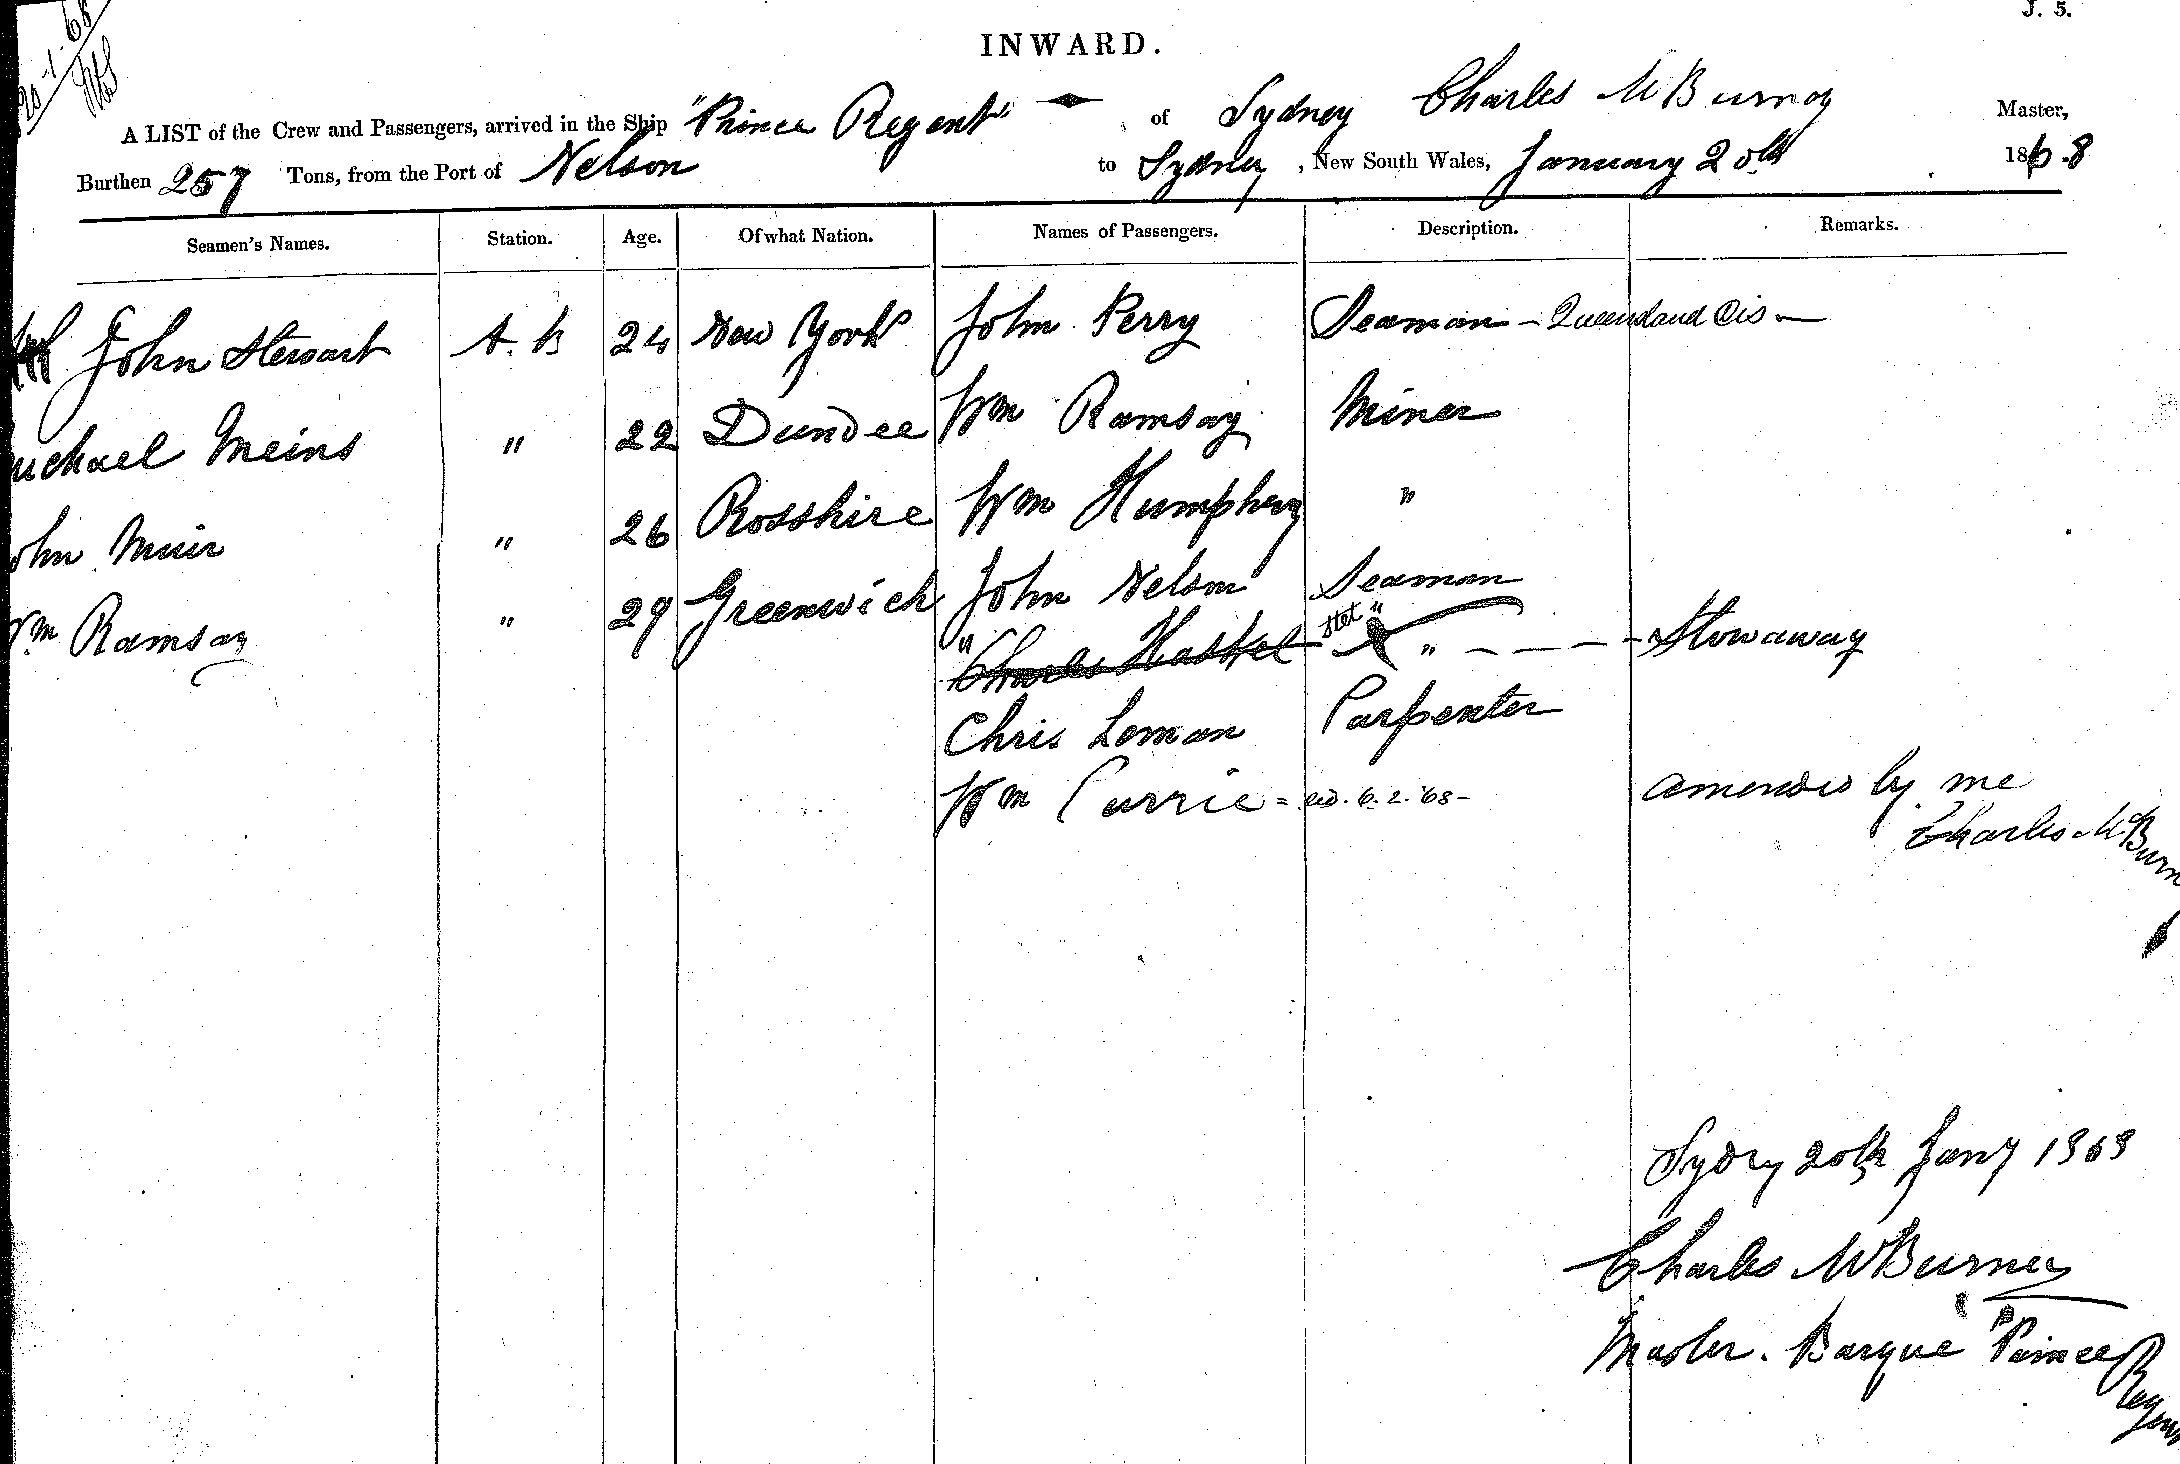 J. 5.
20-1-68
INWARD.
A LIST of the Crew and Passengers, arrived in the Ship "Prince Regent" of Sydney Charles McBurney Master,
Burthen 257 Tons, from the Port of Nelson to Sydney, New South Wales, January 20th 1868
Seamen's Names. Station. Age. Of what Nation. Names of Passengers. Description. Remarks.
John Stewart A.B 24 New York John Perry Seaman - Queensland Dis -
Michael Meins " 22 Dundee Wm Ramsay Miner
John Muir " 26 Rosshire Wm Humphery "
Wm Ramsay " 29 Greenwich John Nelson Seaman
" Charles Haskel stet " " - - - - Stowaway
Chris Loman Carpenter
Wm Currie = 6.2.'68 -
amended by me
Charles McBurn
Sydny 20th Jany 1868
Charles McBurney
Master. Barque "Prince Regent